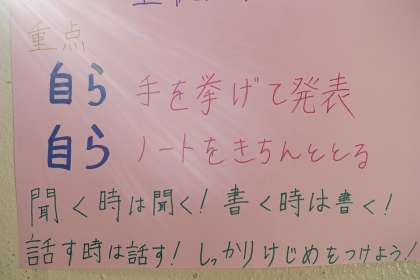 重点
自ら 手を挙げて発表
自ら ノートをきちんととる
聞く時は聞く!書く時は書く!
話す時は話す!しっかりけじめをつけよう!